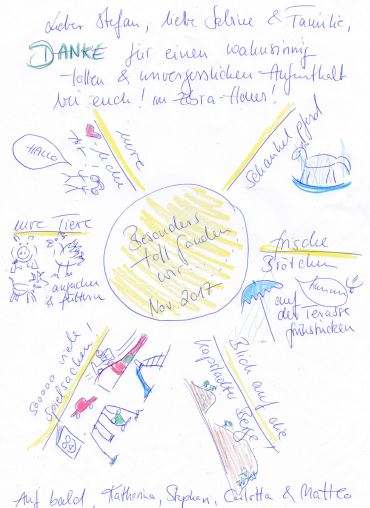 Lieber Stefan, liebe Sabine & Familie,
DANKE für einen wahnsinnig
tollen & unvergesslichen Aufenthalt
bei euch! im Zebra-Haus!
HALLO
eure
Schaukelpferd
eure Tiere
anfachen
& füttern
Besonders
toll fanden
wir.....
Nov. 2017
frische
Brötchen
auf
der Terasse
frühstücken
500000 viele
Spielsachen!
Blick auf die
Kapstadter Berge!
Auf bald, Katharina, Stephan, Carlotta & Matteo